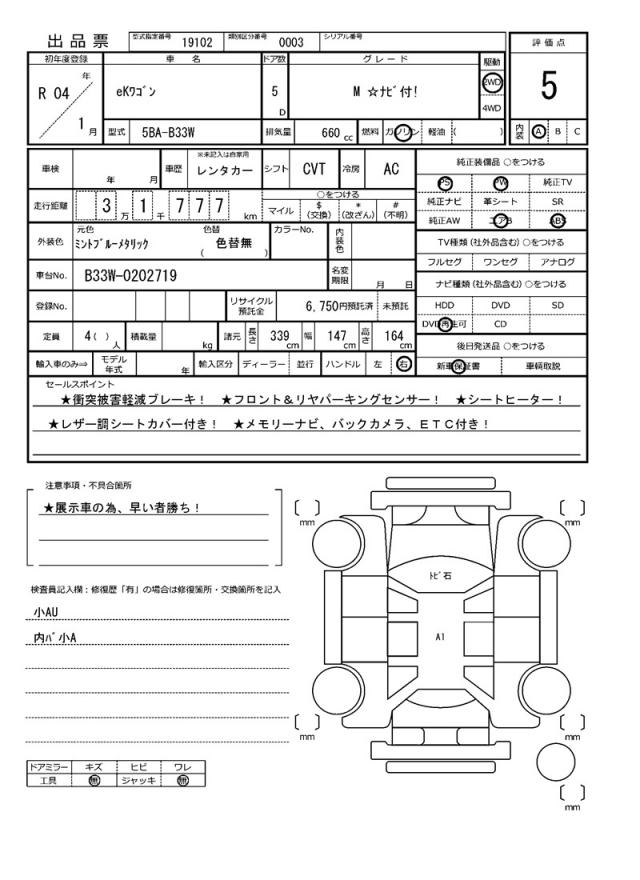 出品票 型式指定番号 19102 類別区分番号 0003 シリアル番号
評価点
5
内装 A B C
初年度登録 車名 ドア数 グレード 駆動
R 04 年 1 月
eKワゴン 5 D M ☆ナビ付! 2WD 4WD
型式 5BA-B33W 排気量 660 cc 燃料 ガソリン 軽油 ( )
車検 年 月 車歴 ※未記入は自家用 レンタカー シフト CVT 冷房 AC
走行距離 3 万 1 千 7 7 7 km ○をつける
マイル $(交換) *(改ざん) #(不明)
外装色 元色 ミントブルーメタリック 色替 ( 色替無 ) カラーNo. 内装色
車台No. B33W-0202719 名変期限 月 日
登録No. リサイクル預託金 6,750円預託済 未預託
定員 4( ) 人 積載量 kg 諸元 長さ 339 cm 幅 147 cm 高さ 164 cm
輸入車のみ⇒ モデル年式 年 輸入区分 ディーラー 並行 ハンドル 左 右
純正装備品 ○をつける
PS PW 純正TV
純正ナビ 革シート SR
純正AW エアB ABS
TV種類(社外品含む)○をつける
フルセグ ワンセグ アナログ
ナビ種類(社外品含む)○をつける
HDD DVD SD
DVD再生可 CD
後日発送品 ○をつける
新車保証書 車輌取説
セールスポイント
★衝突被害軽減ブレーキ! ★フロント&リヤパーキングセンサー! ★シートヒーター!
★レザー調シートカバー付き! ★メモリーナビ、バックカメラ、ETC付き!
注意事項・不具合箇所
★展示車の為、早い者勝ち!
検査員記入欄:修復歴「有」の場合は修復箇所・交換箇所を記入
小AU
内バ小A
ドアミラー キズ ヒビ ワレ
工具 無 ジャッキ 無
[ ] mm [ ] mm
トビ石
A1
[ ] mm [ ] mm
[ ] mm